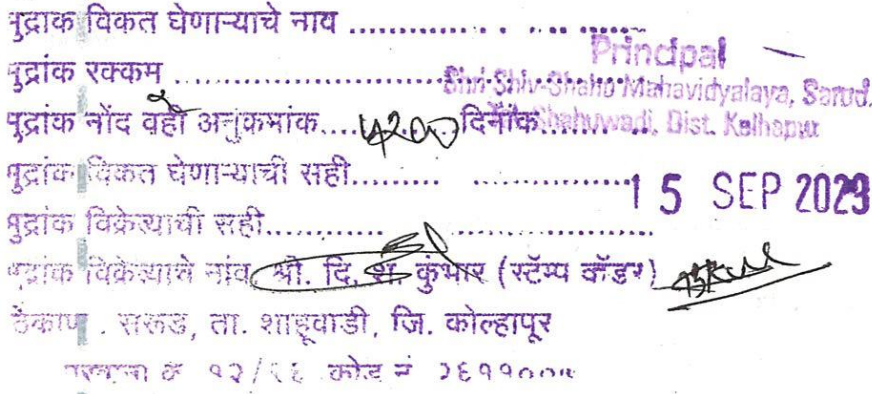 मुद्रांक विकत घेणाऱ्याचे नाव
Principal
मुद्रांक रक्कम
Shri Shiv-Shahu Mahavidyalaya, Sarud.
मुद्रांक नोंद वही अनुक्रमांक....4200....दिनांक
Shahuwadi, Dist. Kolhapur
मुद्रांक विकत घेणाऱ्याची सही
15 SEP 2023
मुद्रांक विक्रेत्याची सही
मुद्रांक विक्रेत्याचे नांव श्री. दि. श. कुंभार (स्टॅम्प व्हेंडर)
ठिकाण . सरूड, ता. शाहूवाडी, जि. कोल्हापूर
१२/९६ कोड नं